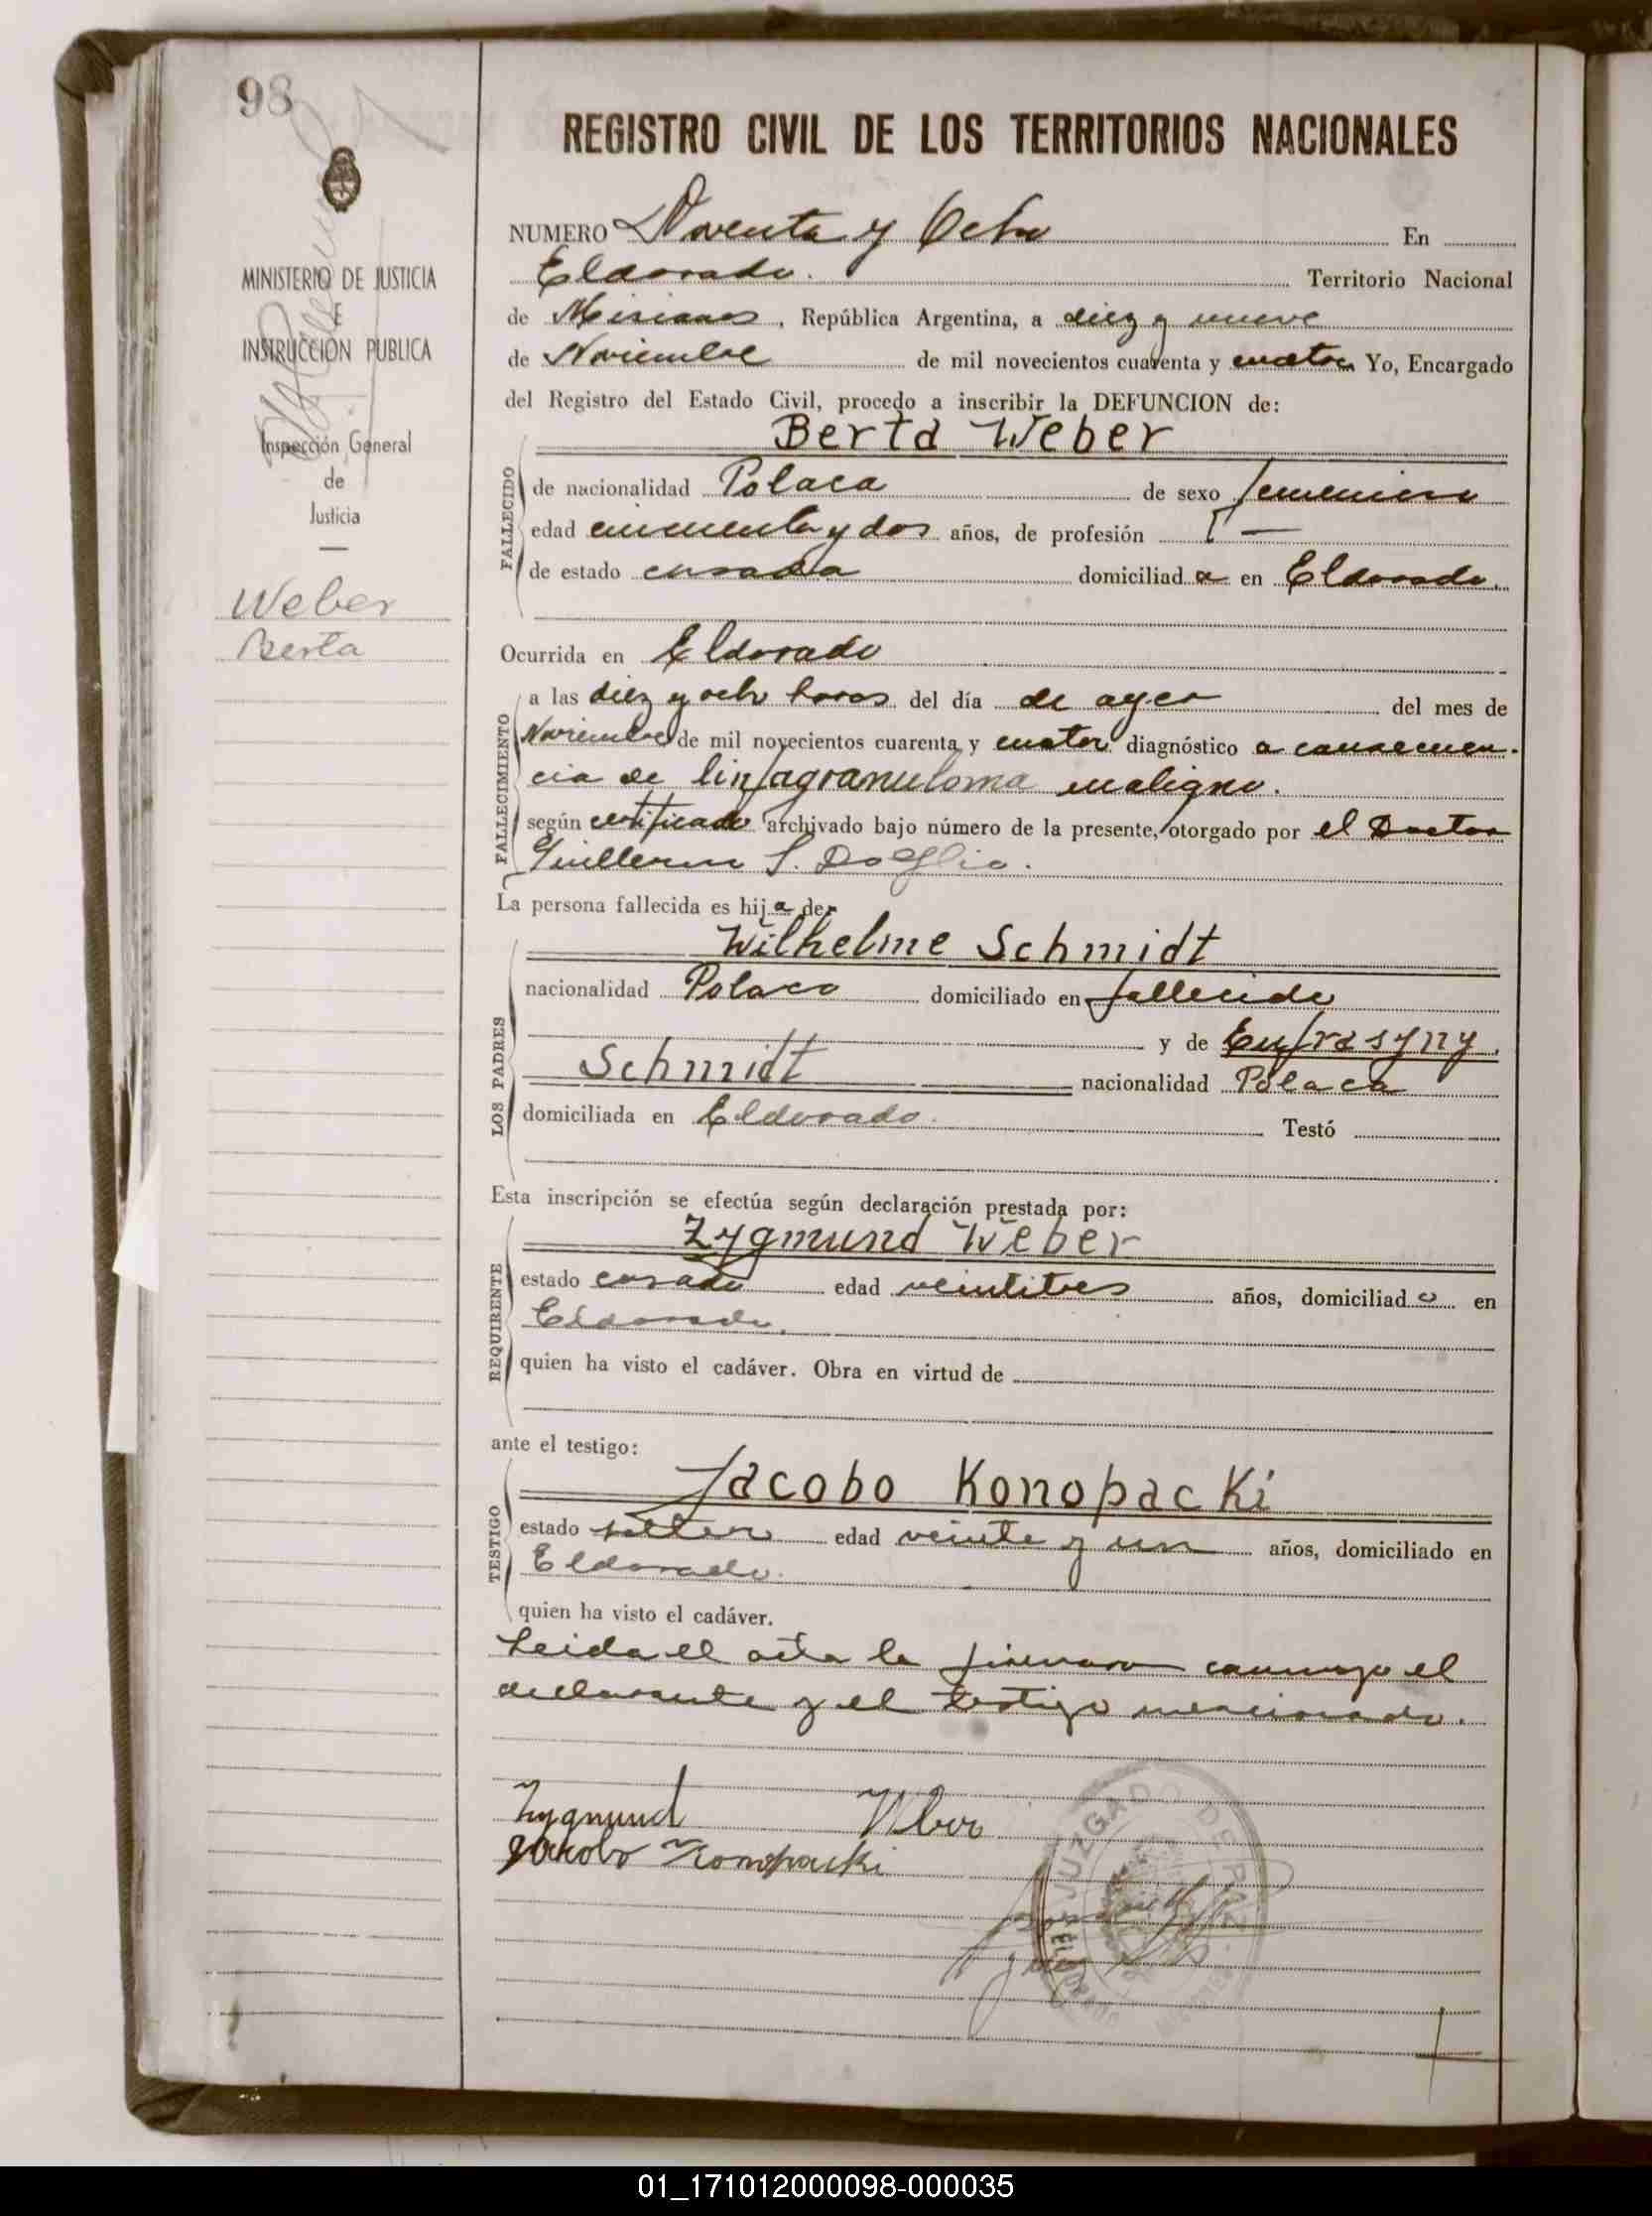 98
MINISTERIO DE JUSTICIA
E
INSTRUCCIÓN PUBLICA
Inspección General
de
Justicia
Weber
Berta
REGISTRO CIVIL DE LOS TERRITORIOS NACIONALES
NUMERO Noventa y Ocho En
Eldorado. Territorio Nacional
de Misiones, República Argentina, a diez y nueve
de Noviembre de mil novecientos cuarenta y cuatro Yo, Encargado
del Registro del Estado Civil, procedo a inscribir la DEFUNCION de:
Berta Weber
FALLECIDO
de nacionalidad Polaca de sexo femenino
edad cincuenta y dos años, de profesión —
de estado casada domiciliad a en Eldorado.
Ocurrida en Eldorado
FALLECIMIENTO
a las diez y ocho horas del día de ayer del mes de
Noviembre de mil novecientos cuarenta y cuatro diagnóstico a consecuen-
cia de linfagranuloma maligno.
según certificado archivado bajo número de la presente, otorgado por el Doctor
Guillermo S. Doglio.
La persona fallecida es hij a de
Wilhelme Schmidt
LOS PADRES
nacionalidad Polaco domiciliado en fallecido
y de Eufrasyny
Schmidt nacionalidad Polaca
domiciliada en Eldorado. Testó
Esta inscripción se efectúa según declaración prestada por:
Zygmund Weber
REQUIRENTE
estado casado edad veintitres años, domiciliad o en
Eldorado.
quien ha visto el cadáver. Obra en virtud de
ante el testigo:
Jacobo Konopacki
TESTIGO
estado soltero edad veinte y un años, domiciliado en
Eldorado.
quien ha visto el cadáver.
Leida el acta la firmaron conmigo el
declarante y el testigo mencionado.
Zygmund Weber
Jakobo Konopacki
JUZGADO DE PAZ
01_171012000098-000035